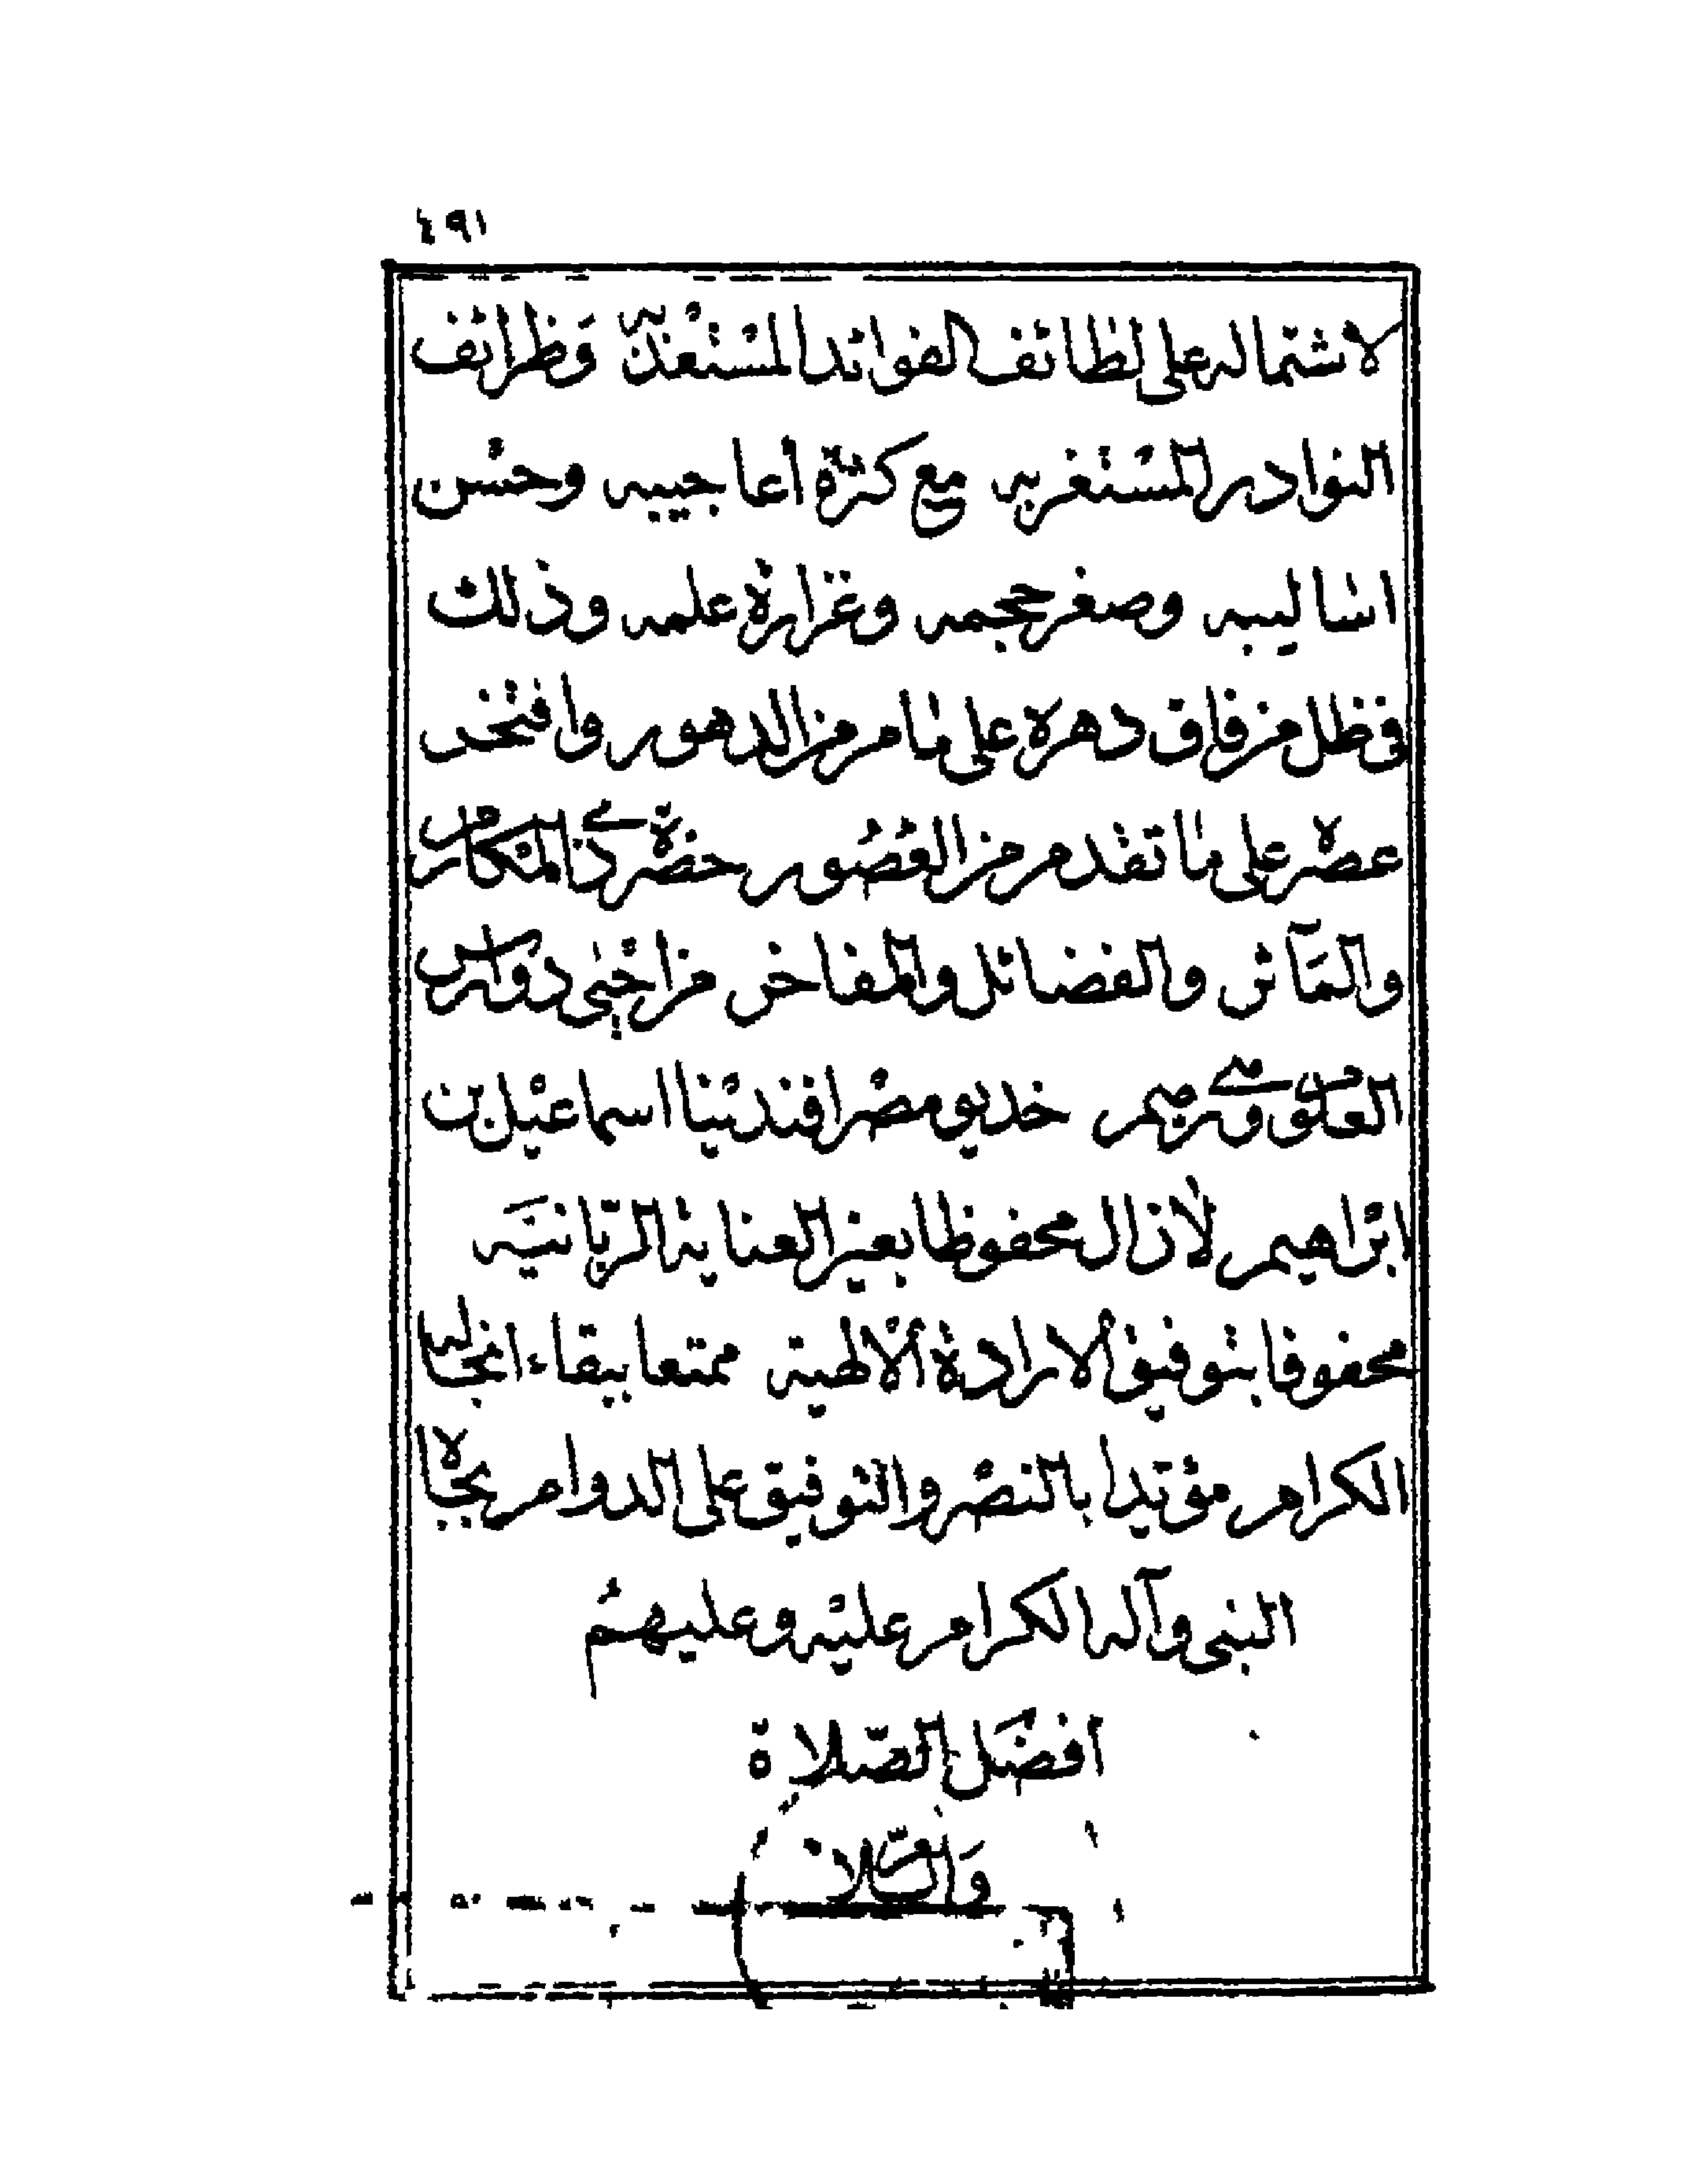 ٤٩١
لاشتماله على لطائف الفوائد المستعذبه وَظرائف
النوادر المستغربه مع كثرة أعاجيبه وحسن
اساليبه وصغر حجمه وغزارة علمه وذلك
فى ظل من فاق دهره على ما مر من الدهور وافتخر
عصره على ما تقدم من العُصُور حضرة ذى المكارم
والمَآثر والفضائل والمفاخر من احيى دوارس
العلوم خديو مصر افندينا اسماعيل بن
ابراهيم لازال محفوظا بعين العناية الربّانيَّه
محفوفا بتوفيق الارادة الالهية ممتعا ببقاء انجاله
الكرام مؤيدا بالنصر والتوفيق على الدوام بجاه
النبى وآله الكرام عليه وعليهم
افضَل الصّلاة
وَالسّلام